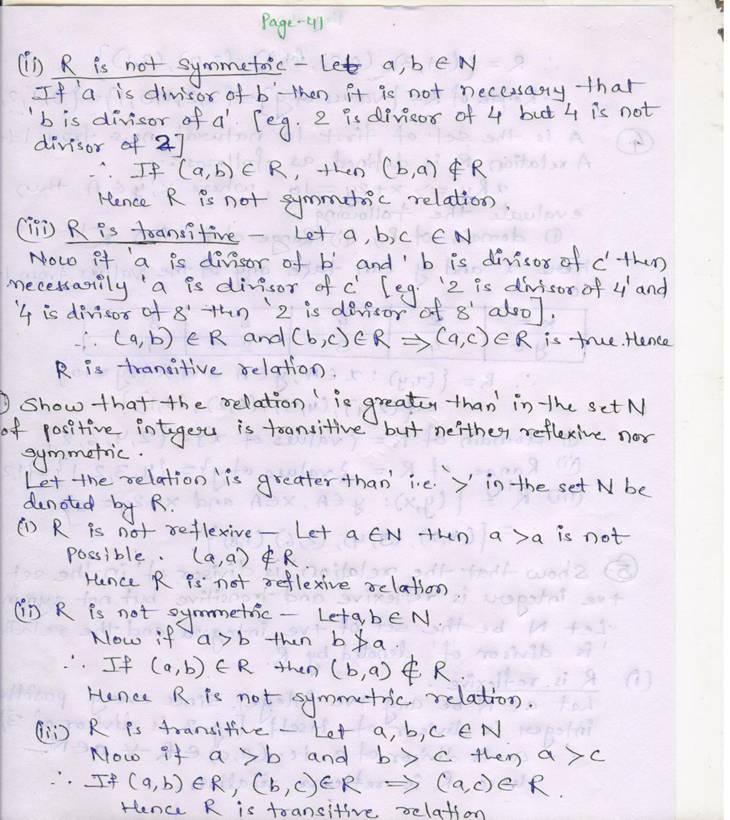 Page-41
(ii) R is not symmetric – Let a, b ∈ N
If 'a is divisor of b' then it is not necessary that
'b is divisor of a'. [eg. 2 is divisor of 4 but 4 is not
divisor of 2]
∴ If (a,b) ∈ R, then (b,a) ∉ R
Hence R is not symmetric relation
(iii) R is transitive – Let a, b, c ∈ N
Now if 'a is divisor of b' and 'b is divisor of c' then
necessarily 'a is divisor of c' [eg. '2 is divisor of 4' and
'4 is divisor of 8' then '2 is divisor of 8' also].
∴ (a,b) ∈ R and (b,c) ∈ R ⇒ (a,c) ∈ R is true. Hence
R is transitive relation.
Show that the relation 'is greater than' in the set N
of positive integers is transitive but neither reflexive nor
symmetric.
Let the relation 'is greater than' i.e. '>' in the set N be
denoted by R.
(i) R is not reflexive – Let a ∈ N then a > a is not
possible. (a,a) ∉ R.
Hence R is not reflexive relation.
(ii) R is not symmetric – Let a, b ∈ N
Now if a > b then b ≯ a
∴ If (a,b) ∈ R then (b,a) ∉ R.
Hence R is not symmetric relation.
(iii) R is transitive – Let a, b, c ∈ N
Now if a > b and b > c then a > c
∴ If (a,b) ∈ R, (b,c) ∈ R ⇒ (a,c) ∈ R.
Hence R is transitive relation